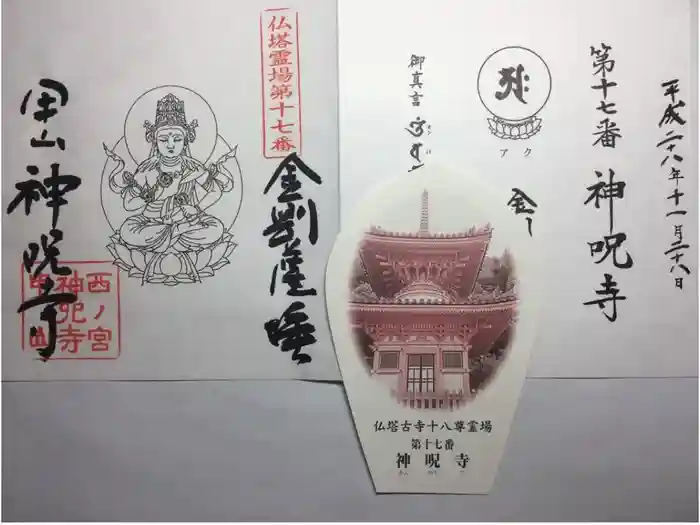 平成二十八年十一月二十八日
第十七番 神呪寺
アク
御真言
仏塔霊場第十七番
甲山 神呪寺
西ノ宮
神呪寺
甲山
仏塔古寺十八尊霊場
第十七番
神呪寺